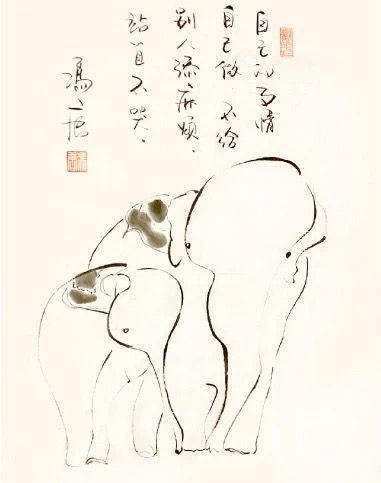 自己的事情
自己做．不给
别人添麻煩．
站直不哭．
馮一